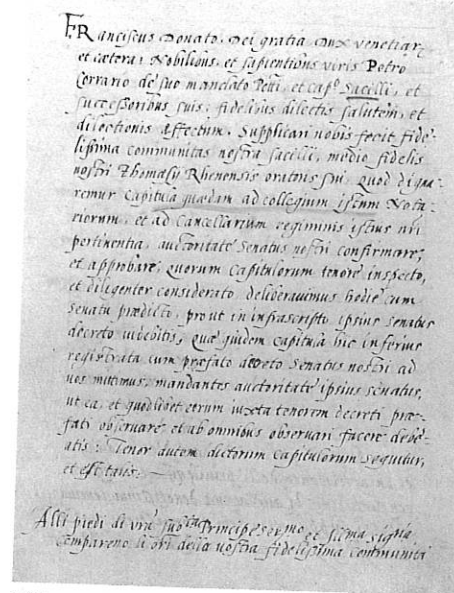 FRanciscus Donato, Dei gratia Dux Venetiar,
et cætera: Nobilibus, et sapientibus viris Petro
Corrario de suo mandato Potti, et capº Sacilli, et
successoribus suis, fidelibus dilectis salutem, et
dilectionis affectum. Supplicari nobis fecit fide-
lissima communitas nostra Sacilli, medio fidelis
nostri Thomasij Rhenensis oratoris sui, quod digna
remur Capitula quædam ad collegium istum Nota
riorum, et ad Cancellarium regiminis istius
pertinentia, auctoritate Senatus nostri confirmare,
et approbare, quorum Capitulorum tenore inspecto,
et diligenter considerato, deliberavimus hodie cum
Senatu prædicto, prout in infrascripto ipsius senatus
decreto videbitis, Quæ quidem capitula hic inferius
registrata cum præfato decreto Senatus nostri ad
vos mittimus, mandantes auctoritate ipsius senatus,
ut ea, et quodlibet eorum iuxta tenorem decreti præ-
fati observare, et ab omnibus observari facere debe-
atis: Tenor autem dictorum Capitulorum sequitur,
et est talis.
Alli piedi di vrã Subta Principe Sermo et Illma signia
Compareno li ori della vostra fidelissima Communità